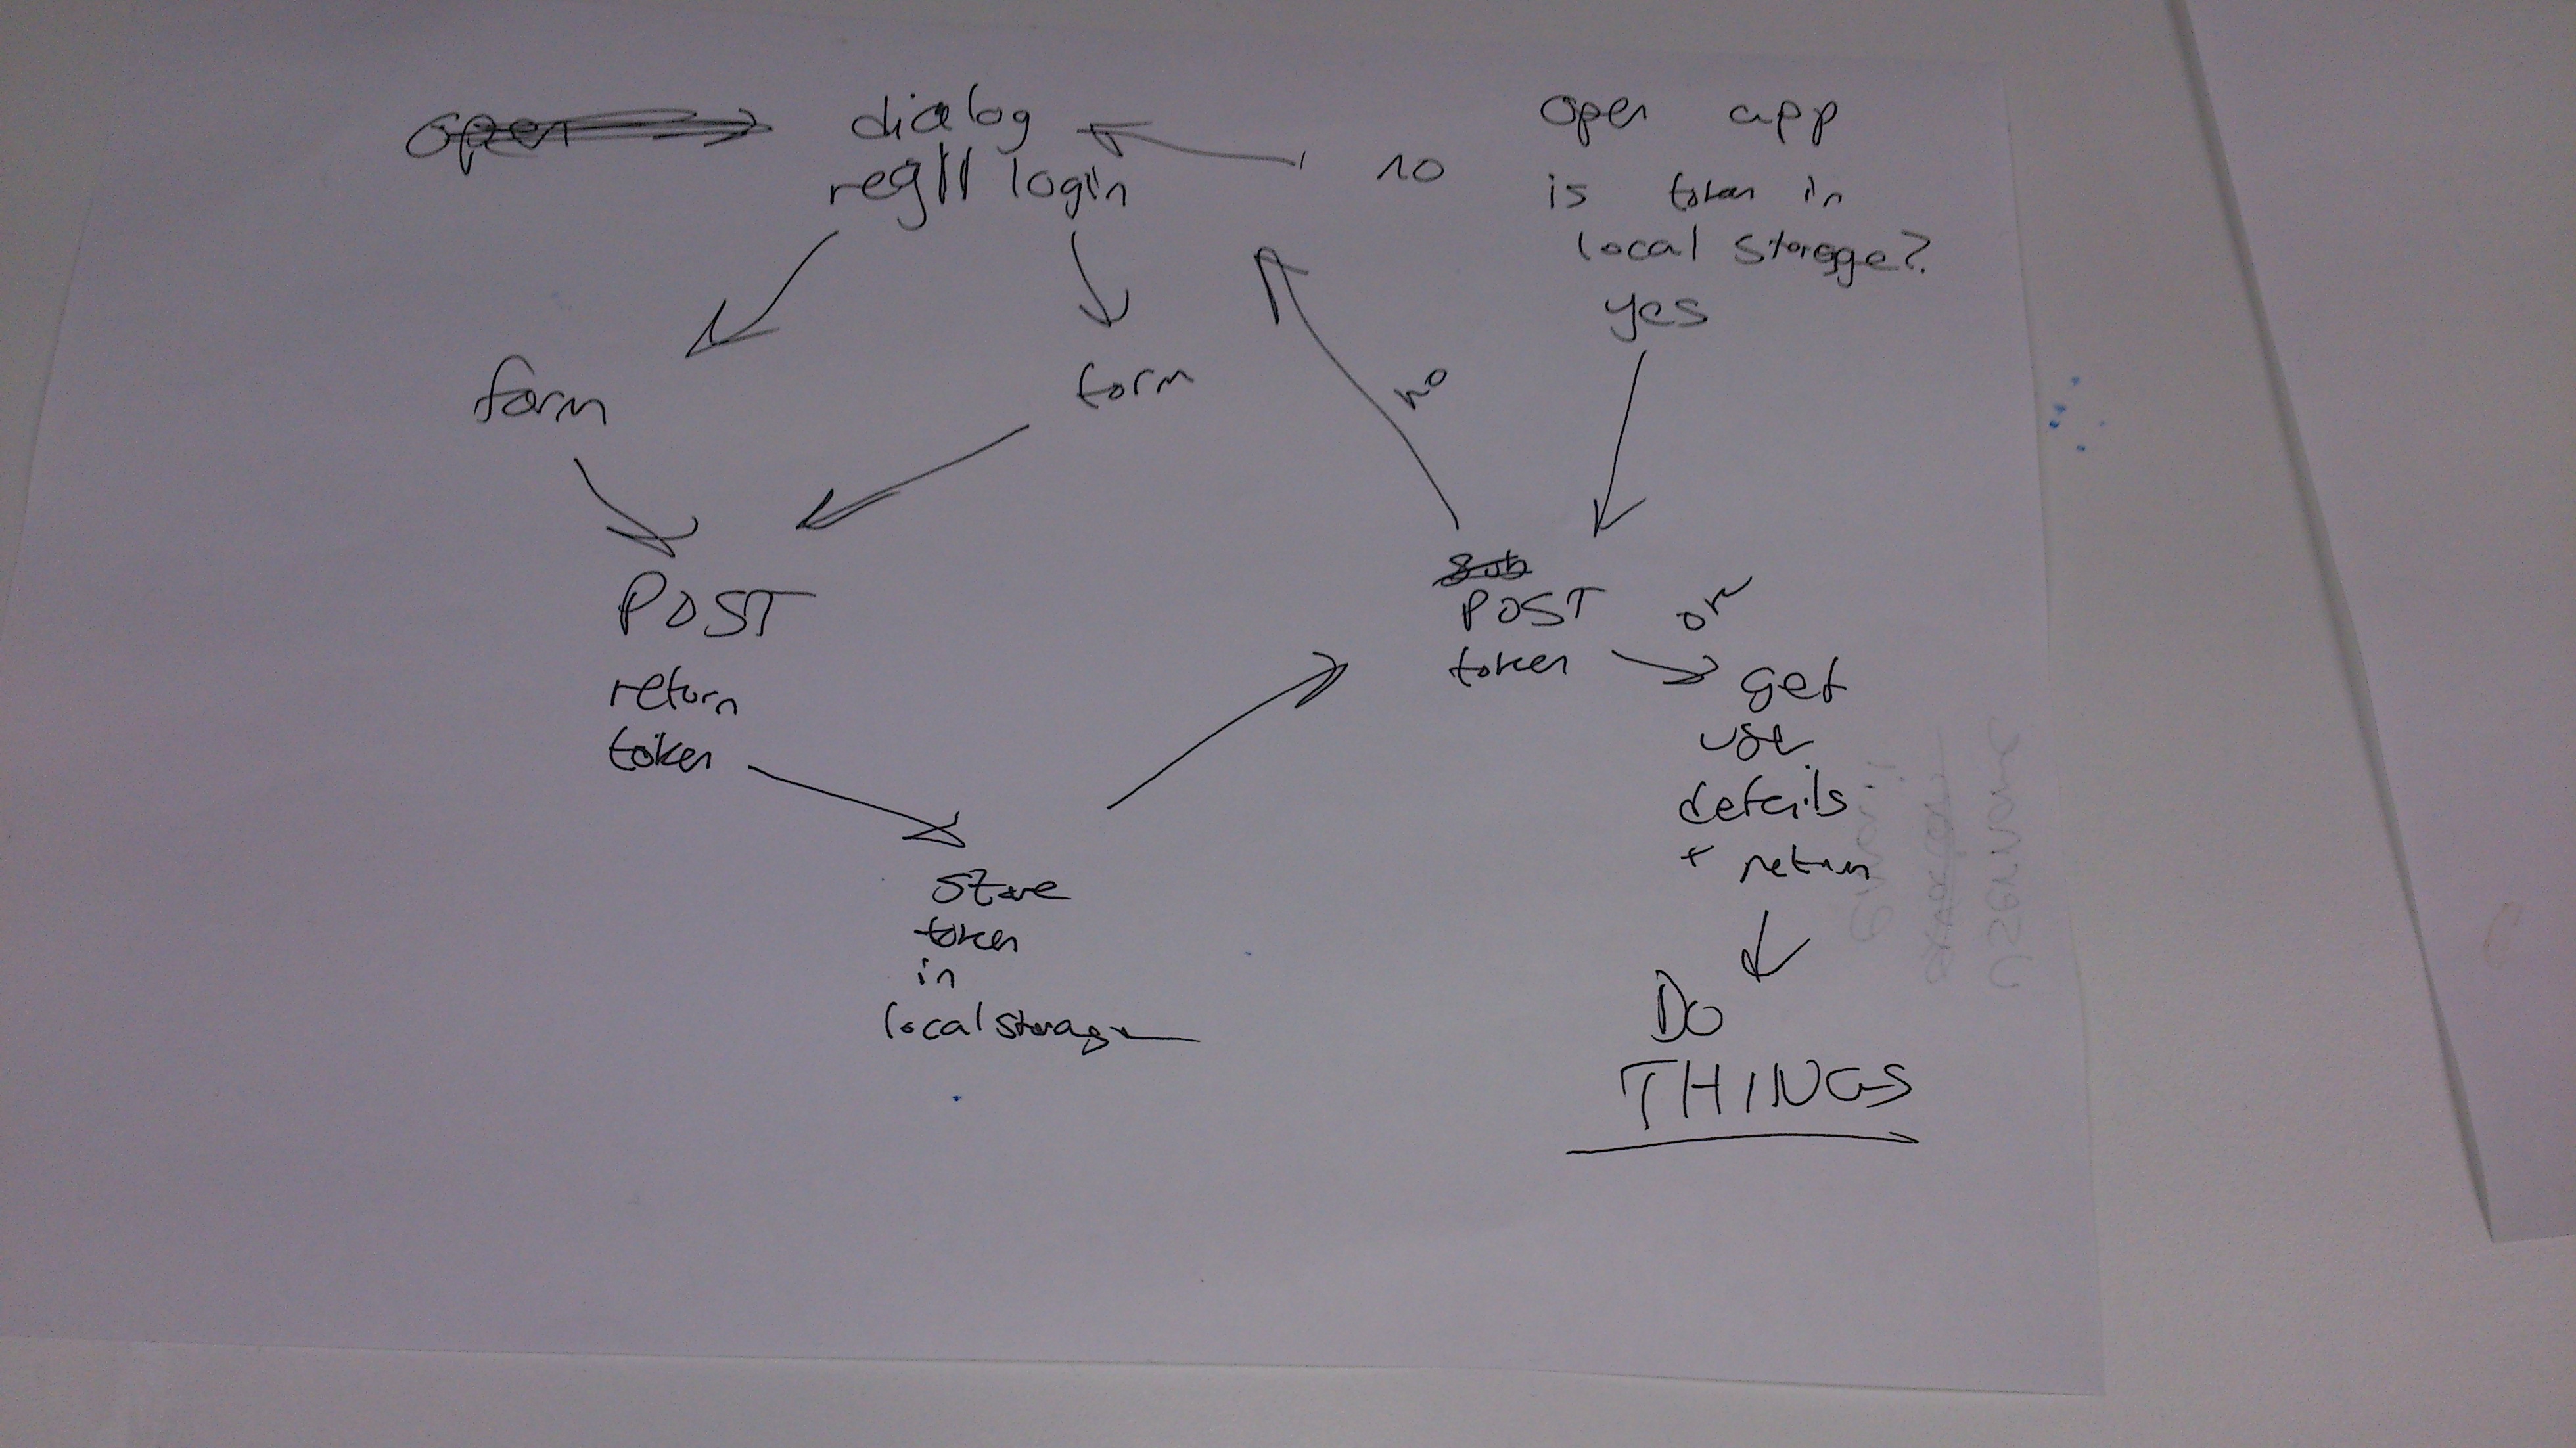 open
dialog
reg || login
no
open app
is token in
local storage?
yes
form
form
no
POST
return
token
Sub
POST
token
or
get
user
details
+ return
store
token
in
local storage
DO
THINGS
email
username